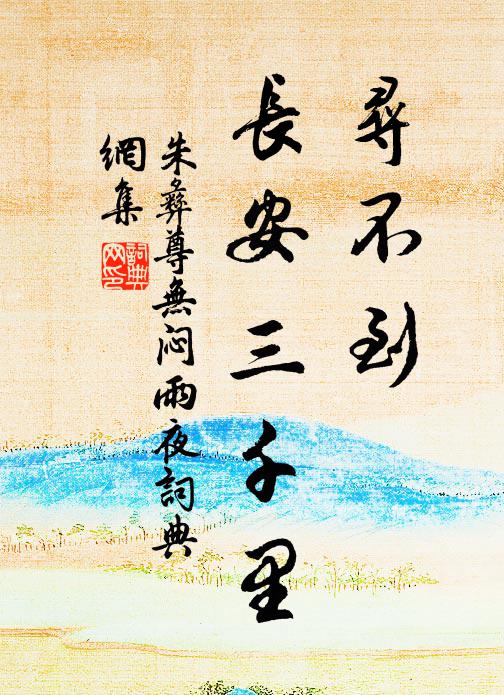 尋不到
長安三千里
朱彝尊無悶雨夜詞典
網集
詞典
网印